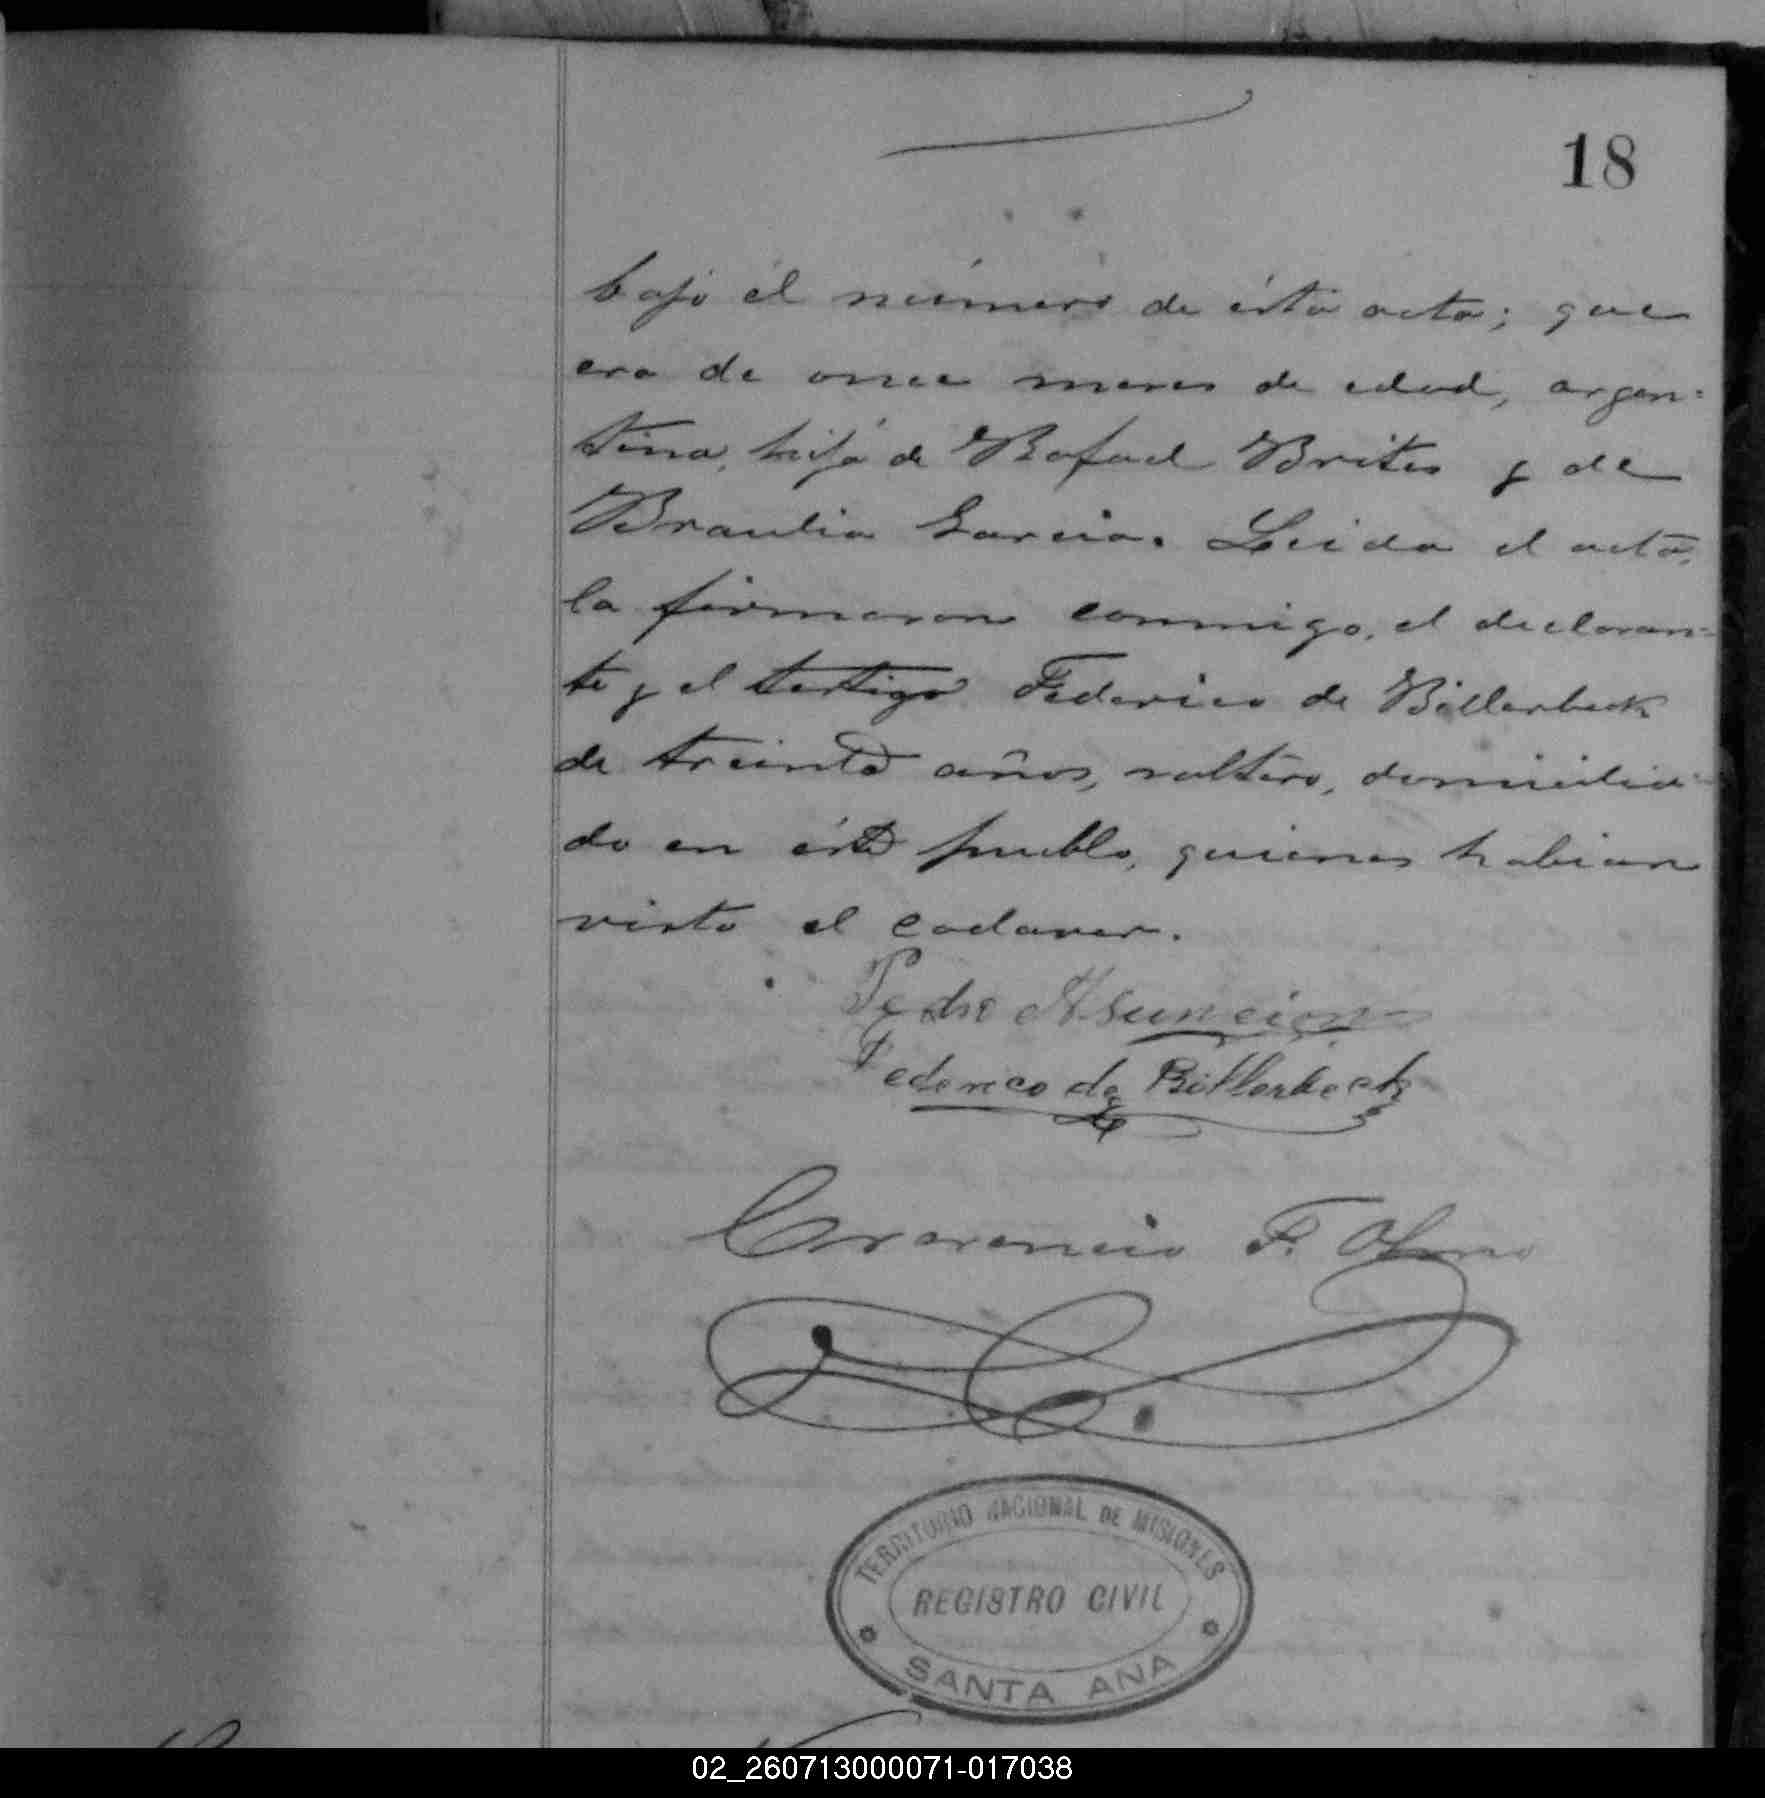 18
bajo el número de ésta acta; que
era de once meses de edad, argen-
tina, hija de Rafael Brites y de
Braulia Garcia. Leida el acta,
la firmaron conmigo, el declaran-
te y el testigo Federico de Billerbeck
de treinta años, soltero, domicilia-
do en éste pueblo, quienes habian
visto el cadaver.
Pedro Asuncion
Federico de Billerbeck
F. Olmo
TERRITORIO NACIONAL DE MISIONES
REGISTRO CIVIL
SANTA ANA
02_260713000071-017038